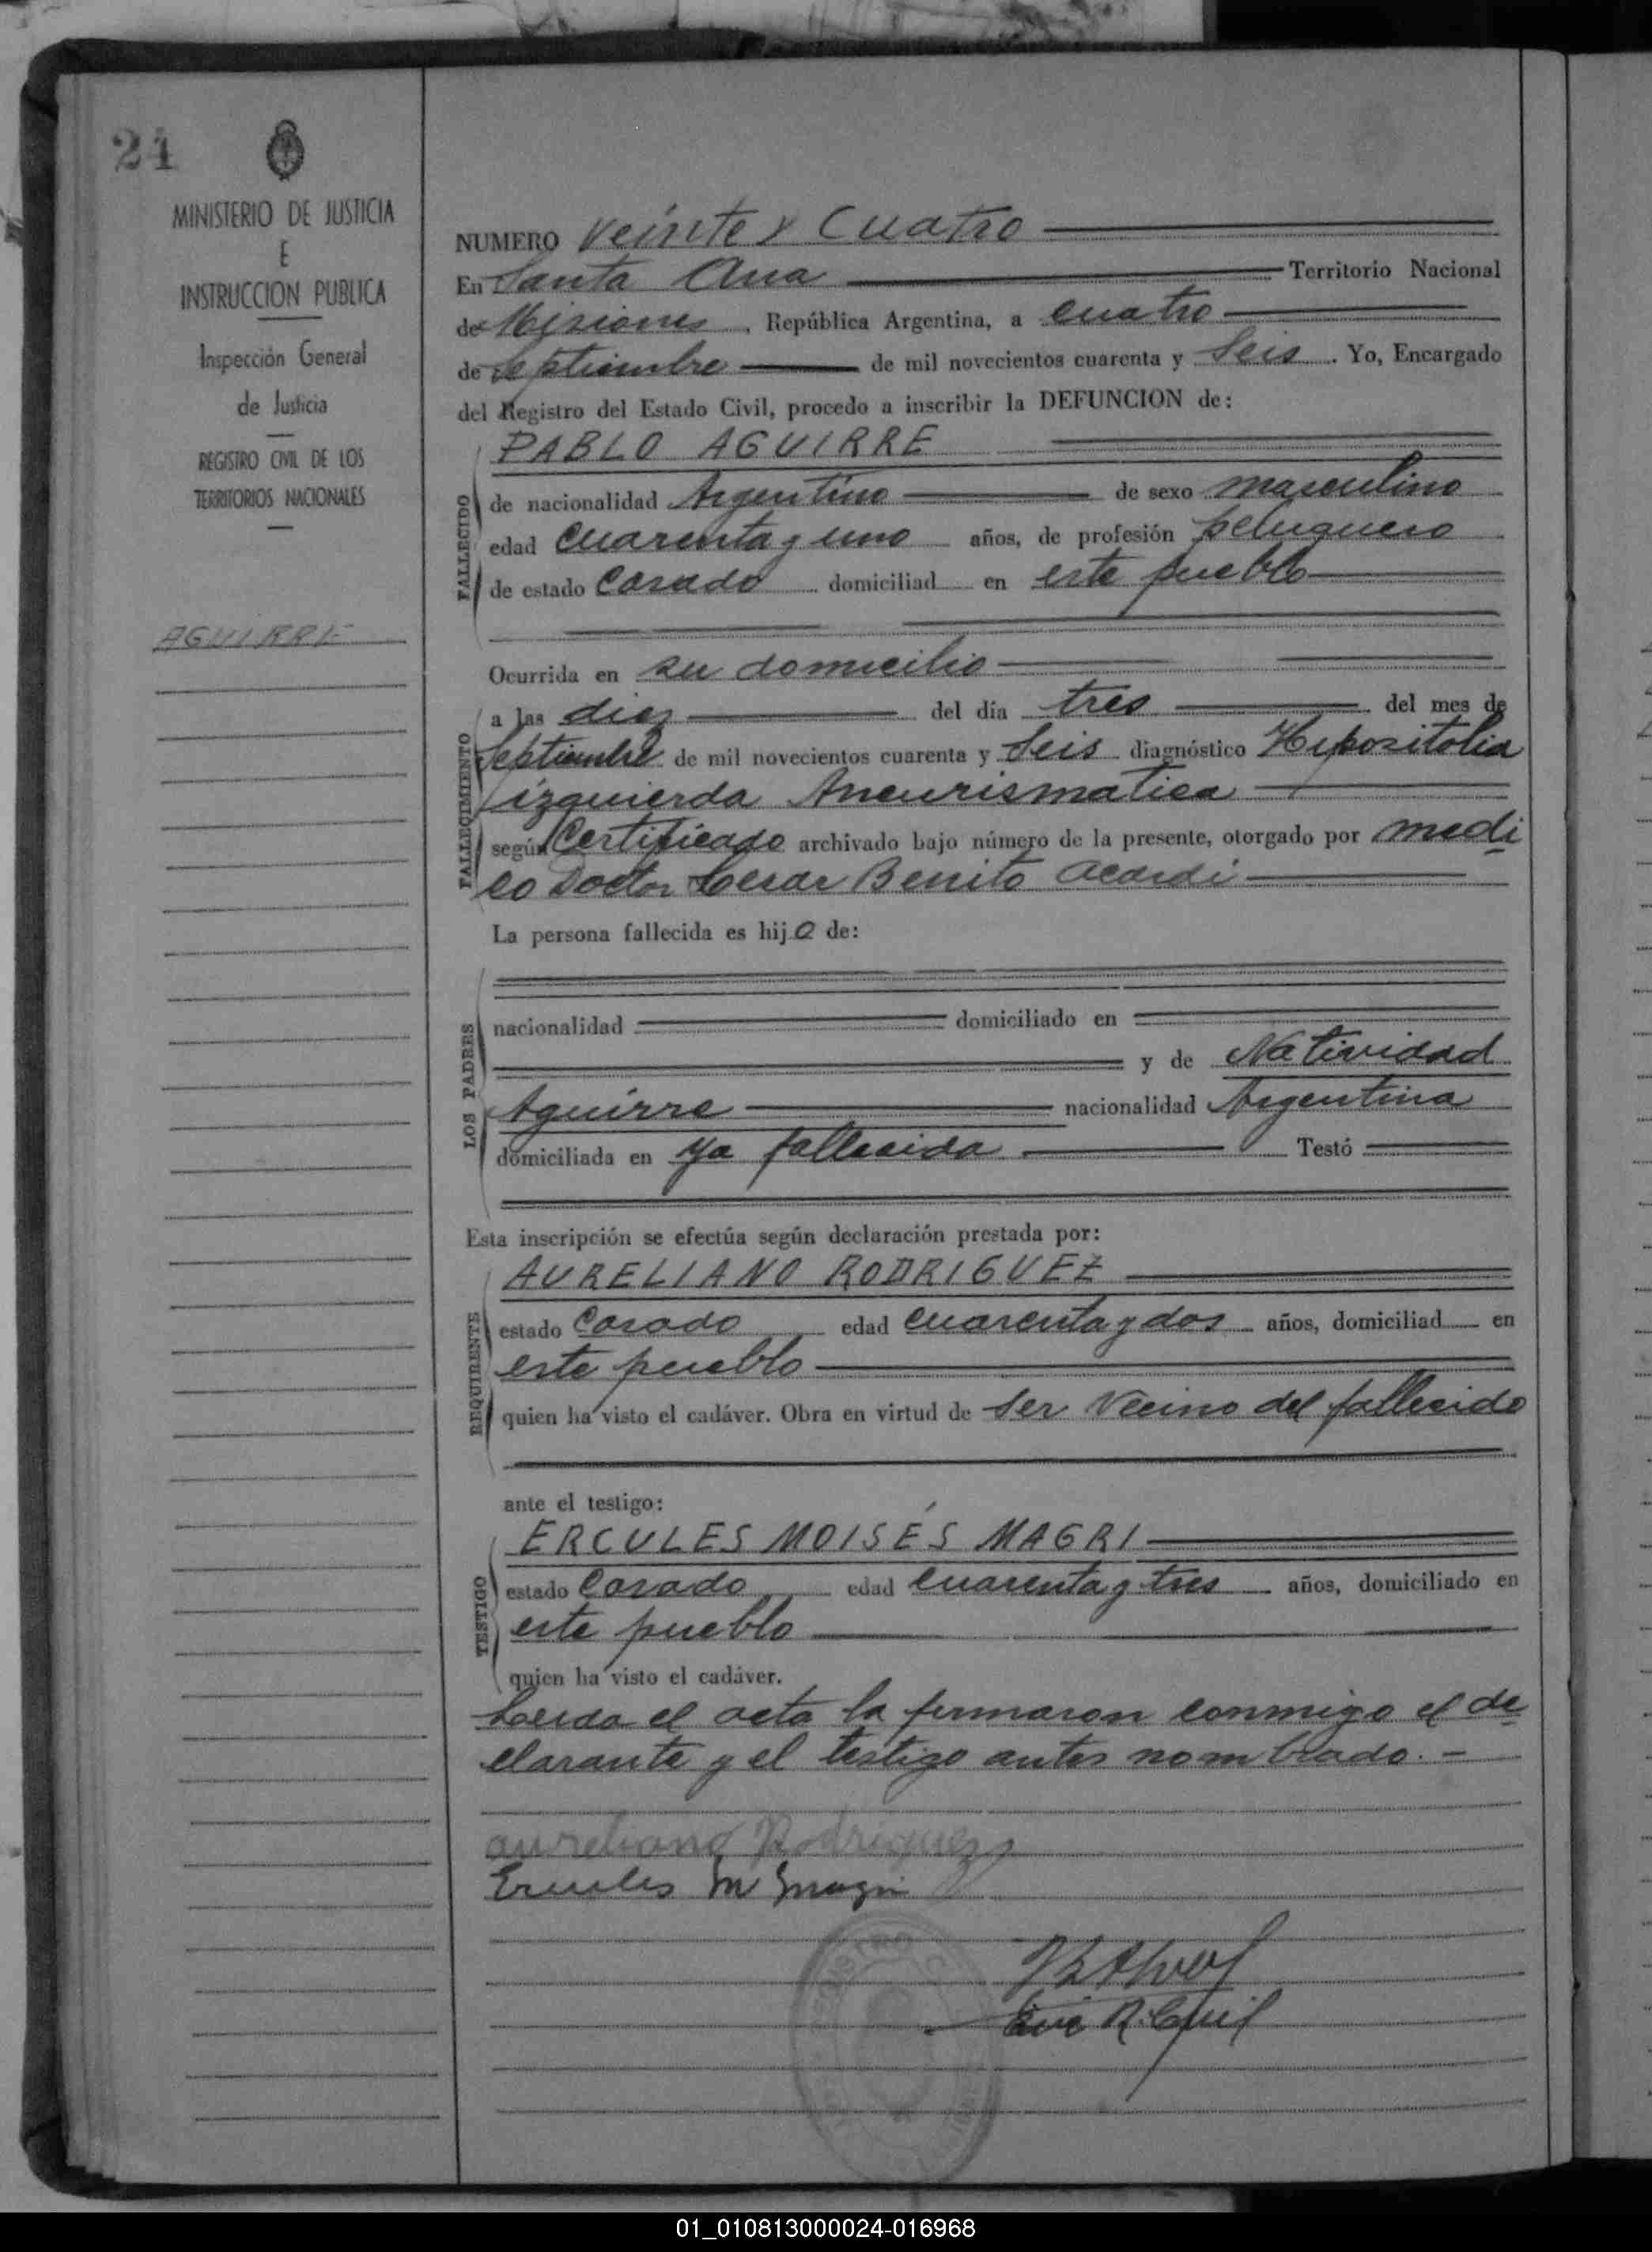 24
MINISTERIO DE JUSTICIA
E
INSTRUCCION PUBLICA
Inspección General
de Justicia
REGISTRO CIVIL DE LOS
TERRITORIOS NACIONALES
AGUIRRE
NUMERO Veinte y Cuatro
En Santa Ana Territorio Nacional
de Misiones, República Argentina, a cuatro
de Septiembre de mil novecientos cuarenta y Seis. Yo, Encargado
del Registro del Estado Civil, procedo a inscribir la DEFUNCION de:
FALLECIDO
PABLO AGUIRRE
de nacionalidad Argentino de sexo masculino
edad Cuarenta y uno años, de profesión peluquero
de estado Casado domiciliad en este pueblo
FALLECIMIENTO
Ocurrida en su domicilio
a las diez del día tres del mes de
Septiembre de mil novecientos cuarenta y Seis diagnóstico
izquierda Aneurismatica
según Certificado archivado bajo número de la presente, otorgado por medi
co Doctor Cesar Benito Acardi
La persona fallecida es hijo de:
LOS PADRES
nacionalidad domiciliado en
y de Natividad
Aguirre nacionalidad Argentina
domiciliada en ya fallecida Testó
Esta inscripción se efectúa según declaración prestada por:
REQUIRENTE
AURELIANO RODRIGUEZ
estado Casado edad Cuarenta y dos años, domiciliad en
este pueblo
quien ha visto el cadáver. Obra en virtud de Ser Vecino del fallecido
ante el testigo:
TESTIGO
ERCULES MOISÉS MAGRI
estado Casado edad Cuarenta y tres años, domiciliado en
este pueblo
quien ha visto el cadáver.
Leida el acta la firmaron conmigo el de
clarante y el testigo antes nombrado.-
aureliano Rodriguez
Ercules M Magri
01_010813000024-016968